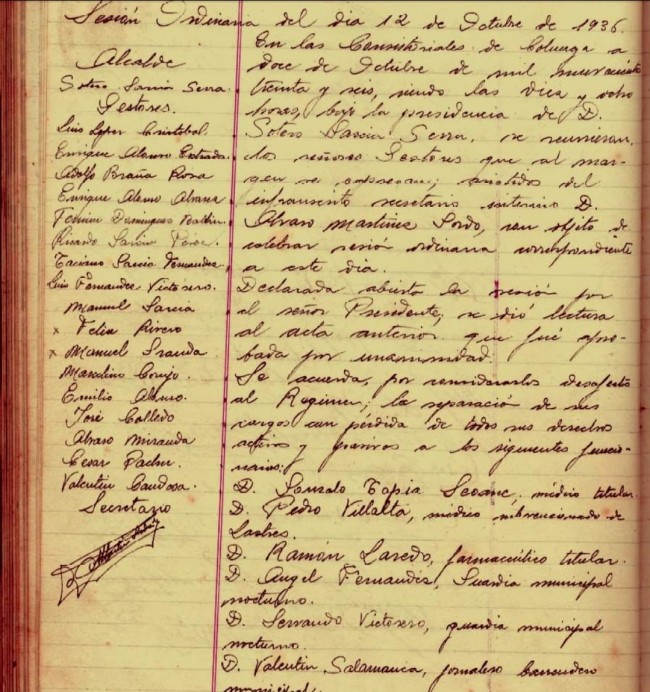 Sesión Ordinaria del dia 12 de Octubre de 1936.
Alcalde
Sotero García Serra.
Gestores.
Luis Lopez Cristobal.
Enrique Alonso Estrada.
Adolfo Braña Rosa
Enrique Alonso Alvarez
Fermin Dominguez
Ricardo Garcia Perez.
Garcia Fernandez
Luis Fernandez Victorero.
Manuel Garcia
x Felix Rivero
x Manuel Granda
Marcelino Conyo.
Emilio Alonso.
José Calledo
Alvaro Miranda
Cesar Pachu.
Valentin Caudosa.
Secretario
En las Consistoriales de Colunga a
doce de Octubre de mil novecientos
treinta y seis, siendo las diez y ocho
horas, bajo la presidencia de D.
Sotero Garcia Serra, se reunieron
los señores Gestores que al mar-
gen se expresan; asistidos del
infrascrito secretario D.
Alvaro Martinez Sordo, con objeto de
celebrar sesión ordinaria correspondiente
a este dia.
Declarada abierta la sesión por
el señor Presidente, se dió lectura
al acta anterior que fué apro-
bada por unanimidad.
Se acuerda, por considerarlos desafectos
al Regimen; la separación de sus
cargos con pérdida de todos sus derechos
activos y pasivos a los siguientes funcio-
narios:
D. Gonzalo Tapia Seoane, médico titular.
D. Pedro Villalta, médico subvencionado de
Lastres.
D. Ramón Laredo, farmaceútico titular.
D. Angel Fernandez, Guardia municipal
nocturno.
D. Servando Victorero, guardia municipal
nocturno.
D. Valentin Salamanca, jornalero barrendero
municipal.